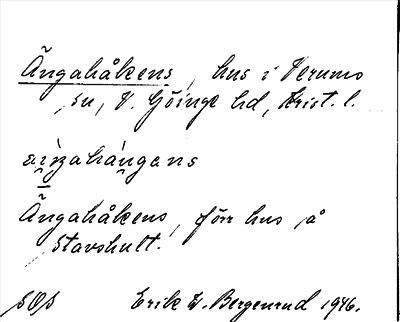 Ängahåkens, hus i Verums
sn, V. Göinge hd, Krist. l.
Ängahåkens, förr hus på
Stavshult.
SOS Erik W. Bergenrud 1946.